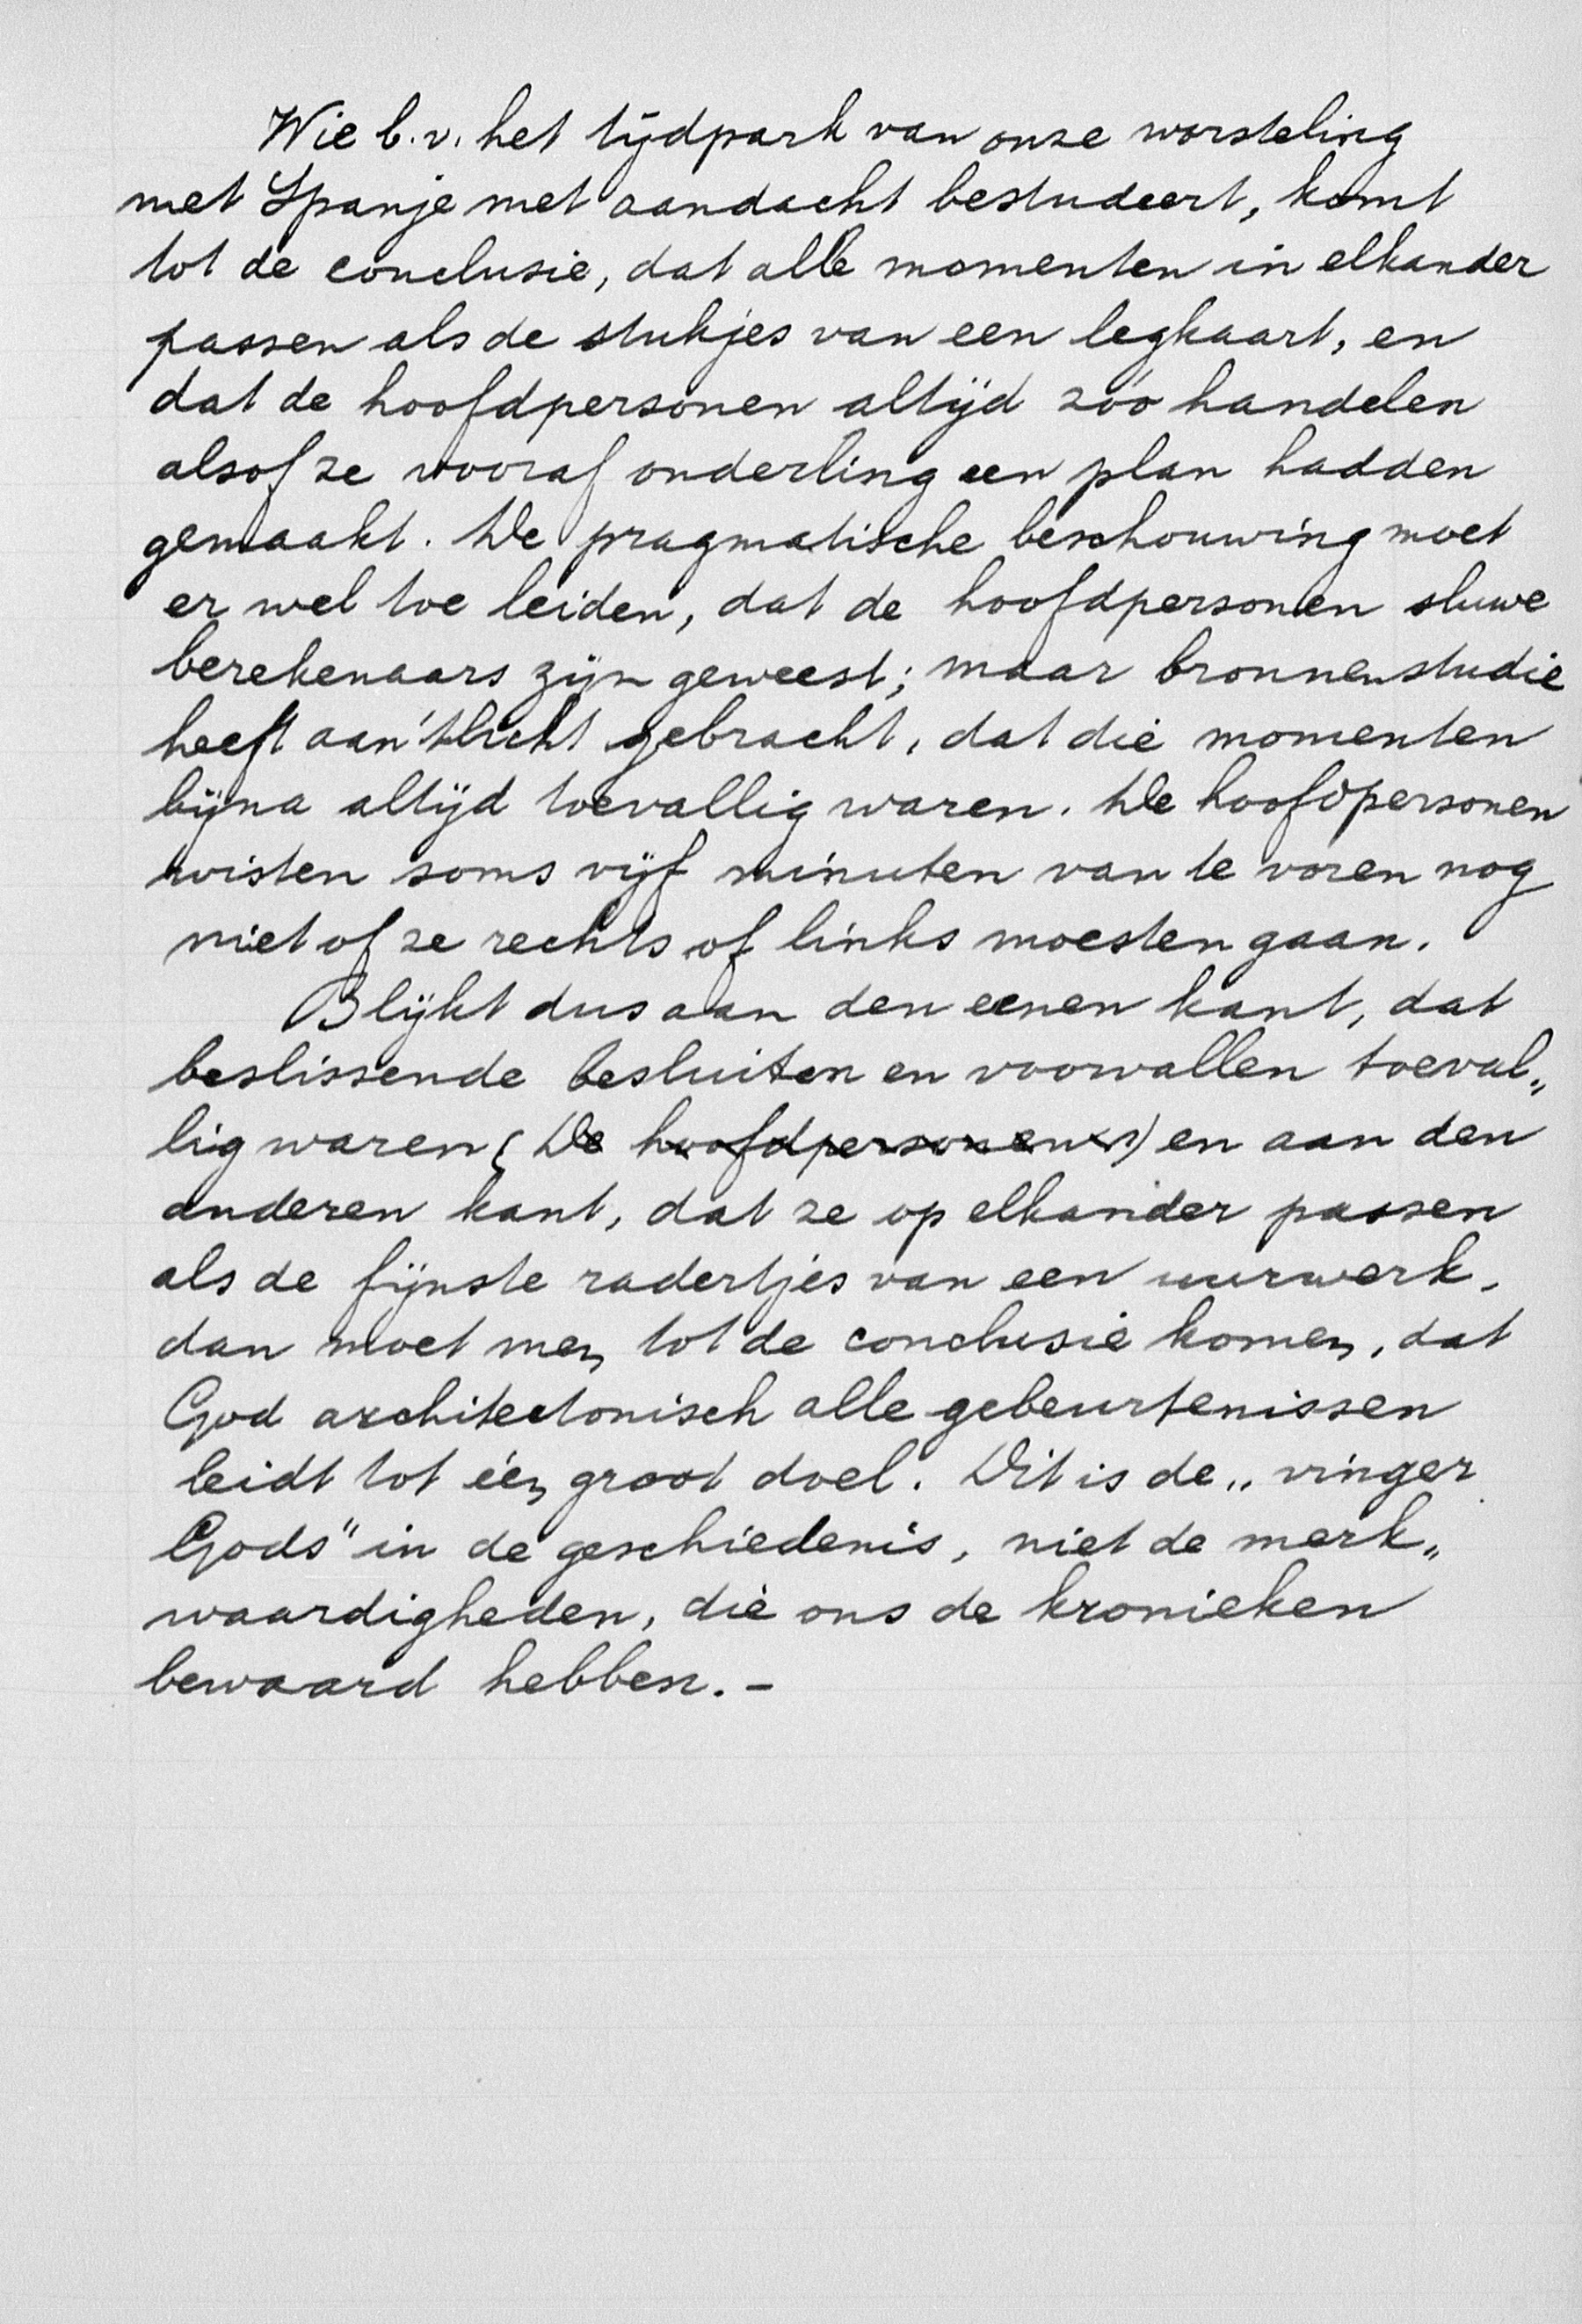 Wie b.v. het tijdpark van onze worsteling
met Spanje met aandacht bestudeert, komt
tot de conclusie, dat alle momenten in elkander
passen als de stukjes van een legkaart, en
dat de hoofdpersonen altijd zóó handelen
alsof ze vooraf onderling een plan hadden
gemaakt. De pragmatische beschouwing moet
er wel toe leiden, dat de hoofdpersonen sluwe
berekenaars zijn geweest; maar bronnenstudie
heeft aan 't licht gebracht, dat die momenten
bijna altijd toevallig waren. De hoofdpersonen
wisten soms vijf minuten van te voren nog
niet of ze rechts of links moesten gaan.
Blijkt dus aan den eenen kant, dat
beslissende besluiten en voorvallen toeval„
lig waren (De hoofdpersonen) en aan den
anderen kant, dat ze op elkander passen
als de fijnste radertjes van een uurwerk,
dan moet men tot de conclusie komen, dat
God architectonisch alle gebeurtenissen
leidt tot één groot doel. Dit is de „vinger
Gods" in de geschiedenis, niet de merk„
waardigheden, die ons de kronieken
bewaard hebben.-